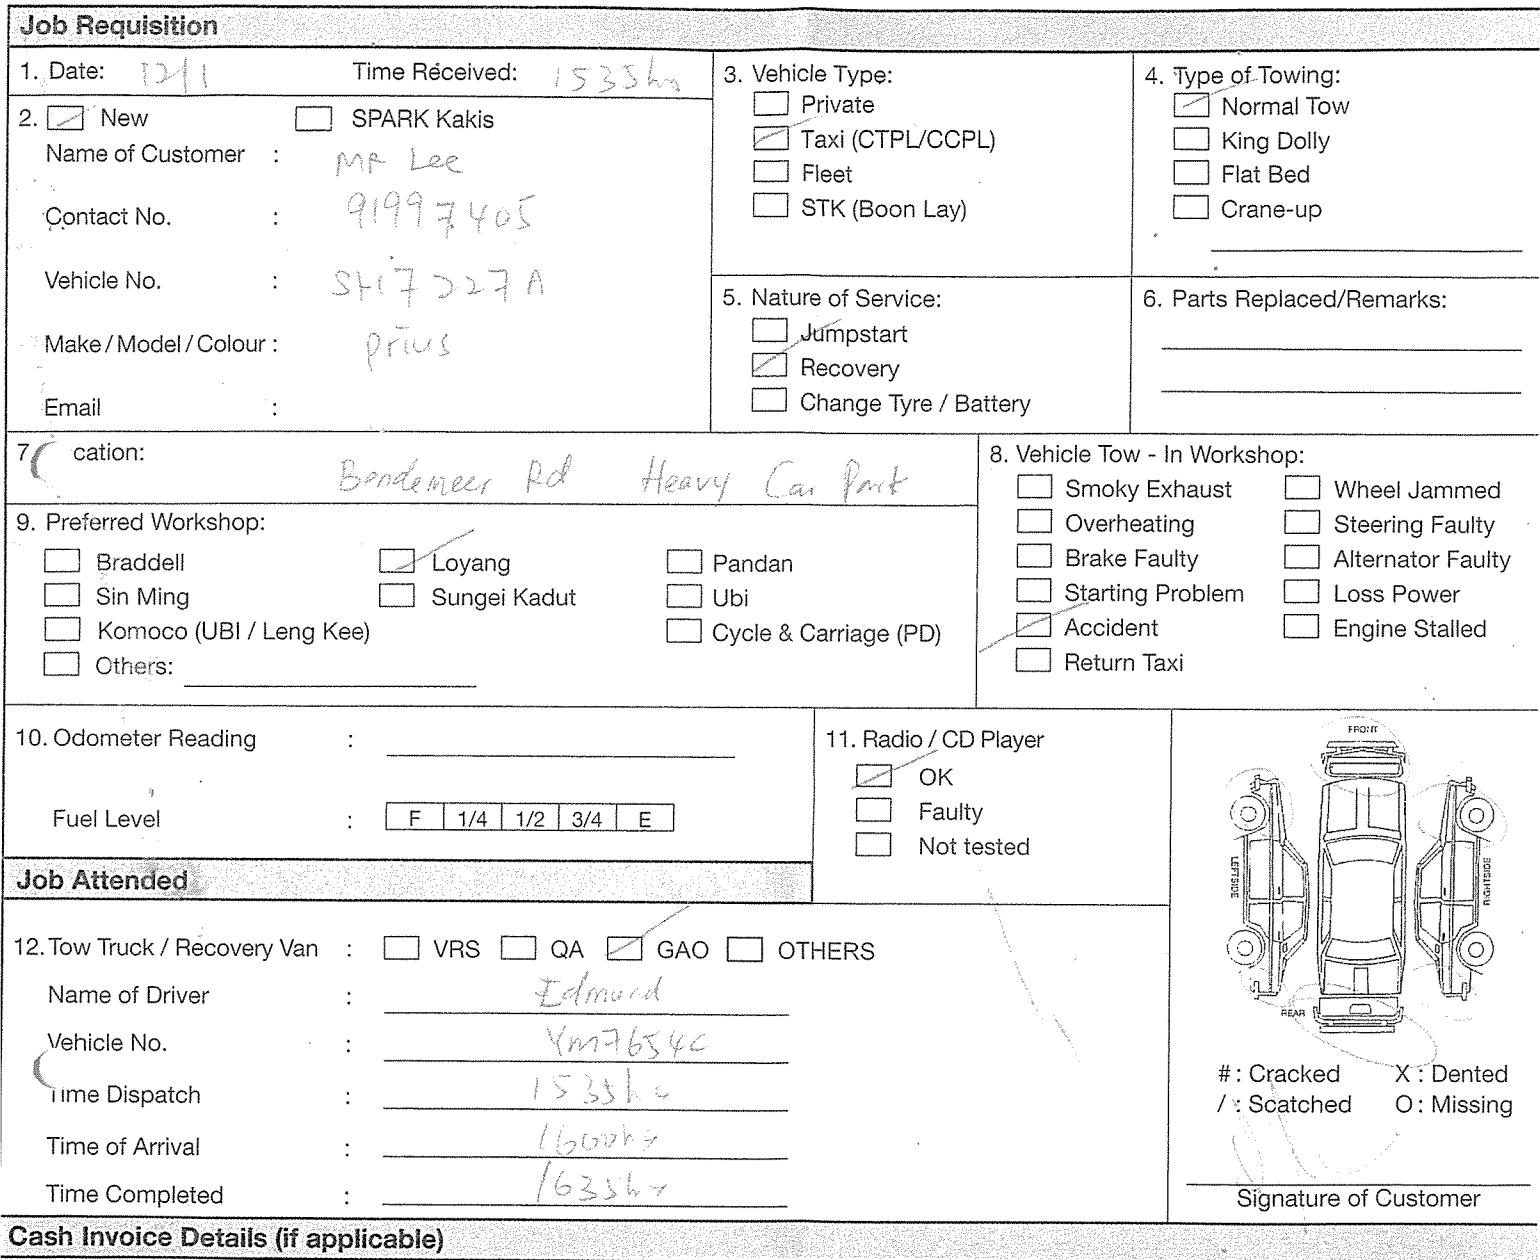 Job Requisition
1. Date: 12/1 Time Received: 1535hrs
2. New SPARK Kakis
Name of Customer : Mr Lee
Contact No. : 91997405
Vehicle No. : SH7227A
Make / Model / Colour : prius
Email :
3. Vehicle Type:
Private
Taxi (CTPL/CCPL)
Fleet
STK (Boon Lay)
4. Type of Towing:
Normal Tow
King Dolly
Flat Bed
Crane-up
5. Nature of Service:
Jumpstart
Recovery
Change Tyre / Battery
6. Parts Replaced/Remarks:
7 cation: Bendemeer Rd Heavy Car Park
8. Vehicle Tow - In Workshop:
Smoky Exhaust Wheel Jammed
Overheating Steering Faulty
Brake Faulty Alternator Faulty
Starting Problem Loss Power
Accident Engine Stalled
Return Taxi
9. Preferred Workshop:
Braddell Loyang Pandan
Sin Ming Sungei Kadut Ubi
Komoco (UBI / Leng Kee) Cycle & Carriage (PD)
Others:
10. Odometer Reading :
Fuel Level : F 1/4 1/2 3/4 E
11. Radio / CD Player
OK
Faulty
Not tested
FRONT
LEFTSIDE
RIGHTSIDE
REAR
# : Cracked X : Dented
/ : Scatched O : Missing
Signature of Customer
Job Attended
12. Tow Truck / Recovery Van : VRS QA GAO OTHERS
Name of Driver : Edmund
Vehicle No. : YM7654C
Time Dispatch : 1535hr
Time of Arrival : 1600hr
Time Completed : 1635hr
Cash Invoice Details (if applicable)